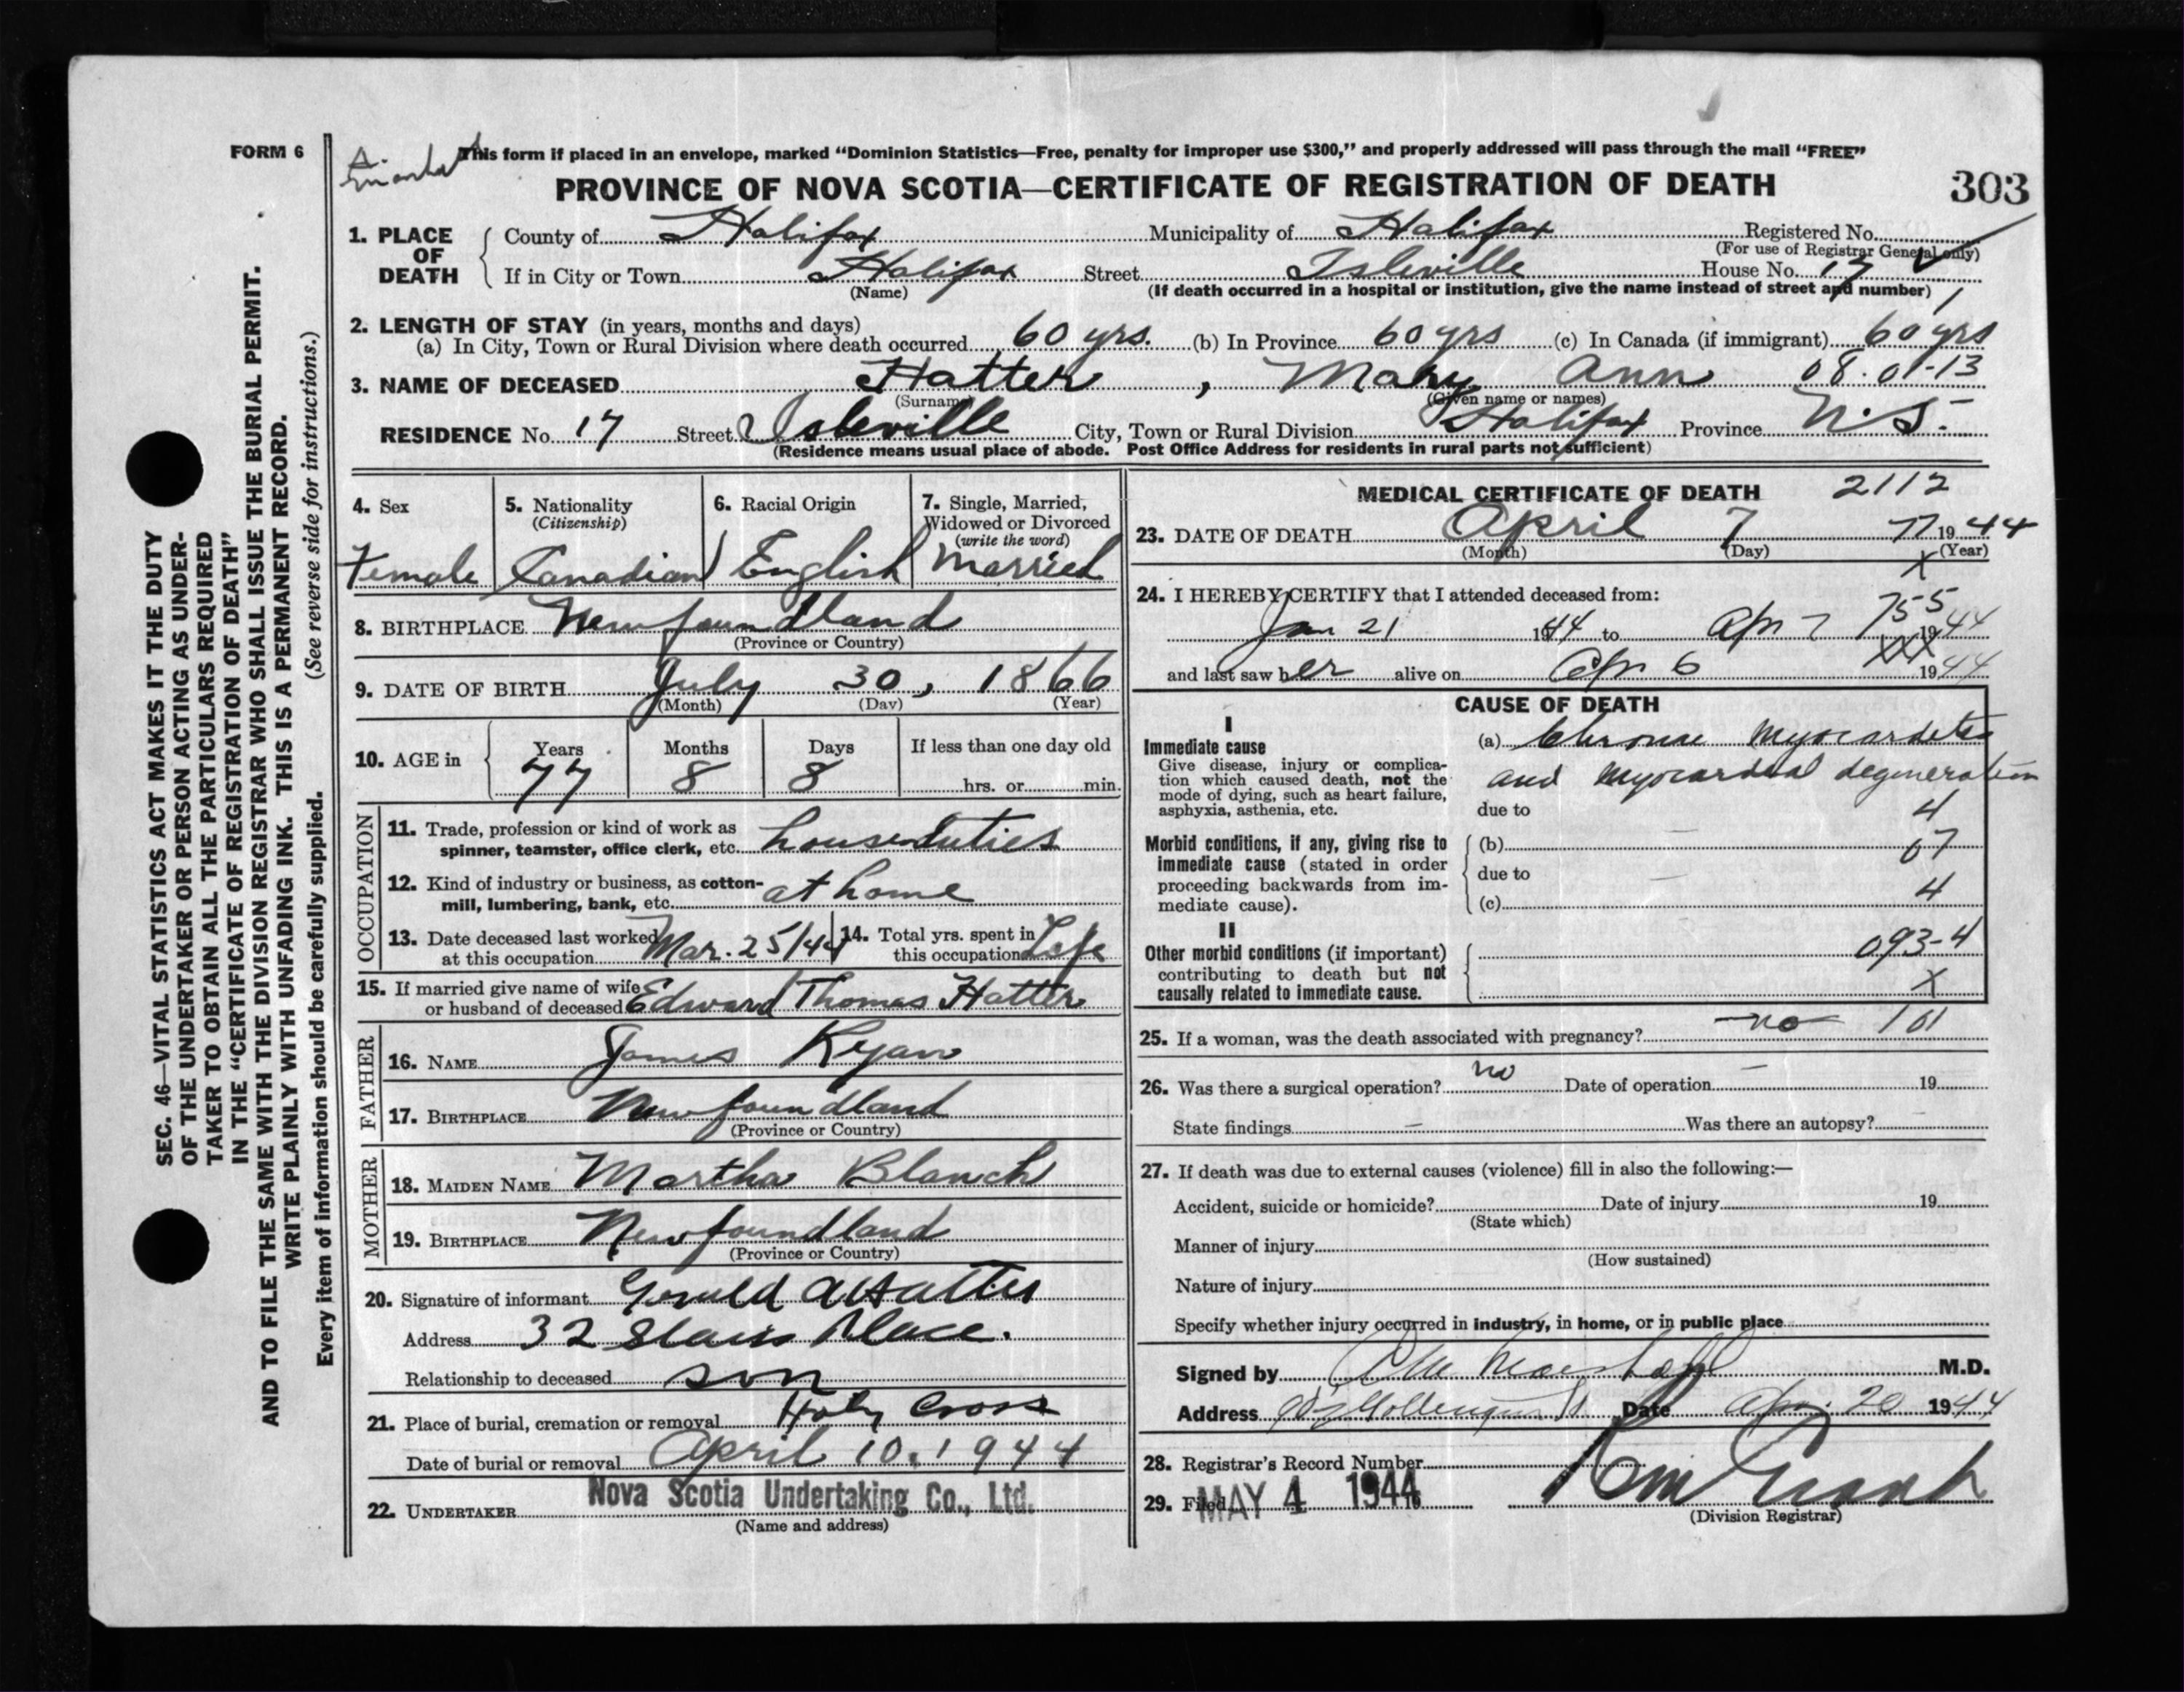 FORM 6
This form if placed in an envelope, marked “Dominion Statistics—Free, penalty for improper use $300,” and properly addressed will pass through the mail “FREE”
PROVINCE OF NOVA SCOTIA—CERTIFICATE OF REGISTRATION OF DEATH
303
1. PLACE OF DEATH
County of Halifax Municipality of Halifax Registered No.
(For use of Registrar General only)
If in City or Town Halifax Street Isleville House No. 17
(Name) (If death occurred in a hospital or institution, give the name instead of street and number)
2. LENGTH OF STAY (in years, months and days)
(a) In City, Town or Rural Division where death occurred 60 yrs. (b) In Province 60 yrs (c) In Canada (if immigrant) 60 yrs
3. NAME OF DECEASED Hatter, Mary Ann 08-01-13
(Surname) (Given name or names)
RESIDENCE No. 17 Street Isleville City, Town or Rural Division Halifax Province N.S.
(Residence means usual place of abode. Post Office Address for residents in rural parts not sufficient)
4. Sex
Female
5. Nationality
(Citizenship)
Canadian
6. Racial Origin
English
7. Single, Married,
Widowed or Divorced
(write the word)
Married
8. BIRTHPLACE Newfoundland
(Province or Country)
9. DATE OF BIRTH July 30, 1866
(Month) (Day) (Year)
10. AGE in
Years Months Days If less than one day old
77 8 8 hrs. or min.
OCCUPATION
11. Trade, profession or kind of work as
spinner, teamster, office clerk, etc. house duties
12. Kind of industry or business, as cotton-
mill, lumbering, bank, etc. at home
13. Date deceased last worked
at this occupation Mar. 25/44
14. Total yrs. spent in
this occupation Life
15. If married give name of wife
or husband of deceased Edward Thomas Hatter
FATHER
16. NAME James Ryan
17. BIRTHPLACE Newfoundland
(Province or Country)
MOTHER
18. MAIDEN NAME Martha Blanch
19. BIRTHPLACE Newfoundland
(Province or Country)
20. Signature of informant Gerald A Hatter
Address 32 Stairs Place.
Relationship to deceased son
21. Place of burial, cremation or removal Holy Cross
Date of burial or removal April 10, 1944
22. UNDERTAKER Nova Scotia Undertaking Co., Ltd.
(Name and address)
MEDICAL CERTIFICATE OF DEATH 2112
23. DATE OF DEATH April 7 77 1944
(Month) (Day) (Year)
X
24. I HEREBY CERTIFY that I attended deceased from: 755
Jan 21 1944 to Apr 7 1944
and last saw her alive on Apr 6 1944
CAUSE OF DEATH
I
Immediate cause
Give disease, injury or complica-
tion which caused death, not the
mode of dying, such as heart failure,
asphyxia, asthenia, etc.
(a) Chronic myocarditis
and myocardial degeneration
due to 4
Morbid conditions, if any, giving rise to
immediate cause (stated in order
proceeding backwards from im-
mediate cause).
(b) 07
due to
(c) 4
II
Other morbid conditions (if important)
contributing to death but not
causally related to immediate cause.
093-4
X
25. If a woman, was the death associated with pregnancy? no 101
26. Was there a surgical operation? no Date of operation — 19
State findings — Was there an autopsy?
27. If death was due to external causes (violence) fill in also the following:—
Accident, suicide or homicide? Date of injury 19
(State which)
Manner of injury
(How sustained)
Nature of injury
Specify whether injury occurred in industry, in home, or in public place
Signed by Marshall M.D.
Address Hollis St Date Apr. 20 1944
28. Registrar's Record Number
29. Filed MAY 4 1944
(Division Registrar)
SEC. 46—VITAL STATISTICS ACT MAKES IT THE DUTY
OF THE UNDERTAKER OR PERSON ACTING AS UNDER-
TAKER TO OBTAIN ALL THE PARTICULARS REQUIRED
IN THE “CERTIFICATE OF REGISTRATION OF DEATH”
AND TO FILE THE SAME WITH THE DIVISION REGISTRAR WHO SHALL ISSUE THE BURIAL PERMIT.
WRITE PLAINLY WITH UNFADING INK. THIS IS A PERMANENT RECORD.
(See reverse side for instructions.)
Every item of information should be carefully supplied.